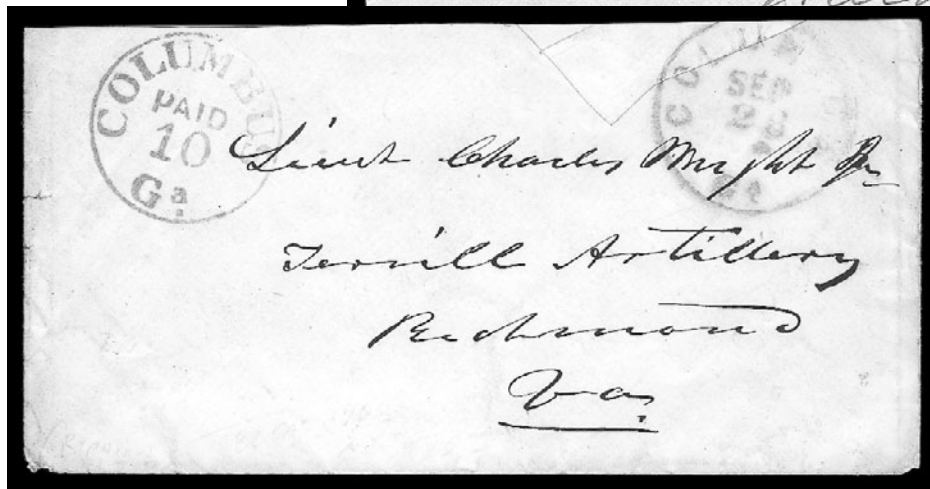 COLUMBUS
PAID
10
Ga.
SEP
Lieut Charles Wright Jr
Terrill Artillery
Richmond
Va